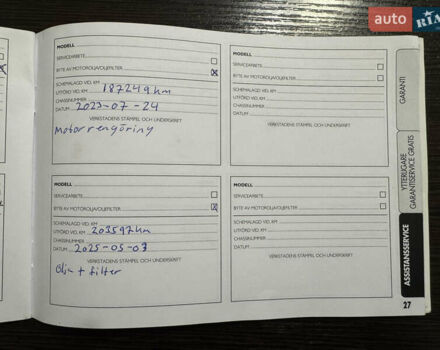 auto RIA
MODELL
SERVICEARBETE
BYTE AV MOTOROLJA/OLJEFILTER
SCHEMALAGD VID. KM
UTFÖRD VID. KM 187249km
CHASSINUMMER
DATUM 2023-07-24
VERKSTADENS STÄMPEL OCH UNDERSKRIFT
Motorrengöring
MODELL
SERVICEARBETE
BYTE AV MOTOROLJA/OLJEFILTER
SCHEMALAGD VID. KM
UTFÖRD VID. KM
CHASSINUMMER
DATUM
VERKSTADENS STÄMPEL OCH UNDERSKRIFT
MODELL
SERVICEARBETE
BYTE AV MOTOROLJA/OLJEFILTER
SCHEMALAGD VID. KM
UTFÖRD VID. KM 203597km
CHASSINUMMER
DATUM 2025-05-03
VERKSTADENS STÄMPEL OCH UNDERSKRIFT
Olja + filter
MODELL
SERVICEARBETE
BYTE AV MOTOROLJA/OLJEFILTER
SCHEMALAGD VID. KM
UTFÖRD VID. KM
CHASSINUMMER
DATUM
VERKSTADENS STÄMPEL OCH UNDERSKRIFT
GARANTI
YTTERLIGARE
GARANTISERVICE GRATIS
ASSISTANSSERVICE
27